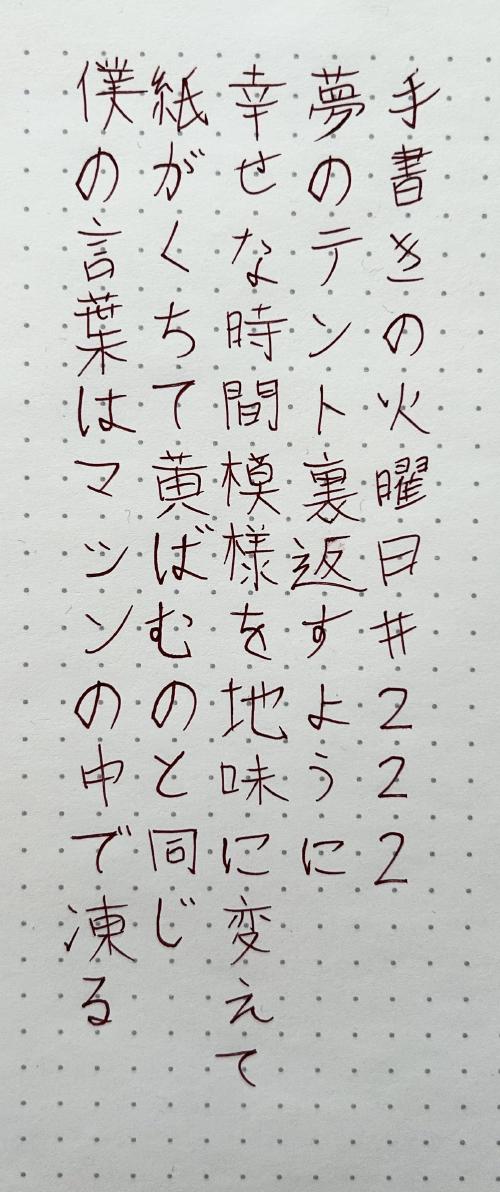 手書きの火曜日#222
夢のテント裏返すように
幸せな時間模様を地味に変えて
紙がくちて黄ばむのと同じ
僕の言葉はマシンの中で凍る